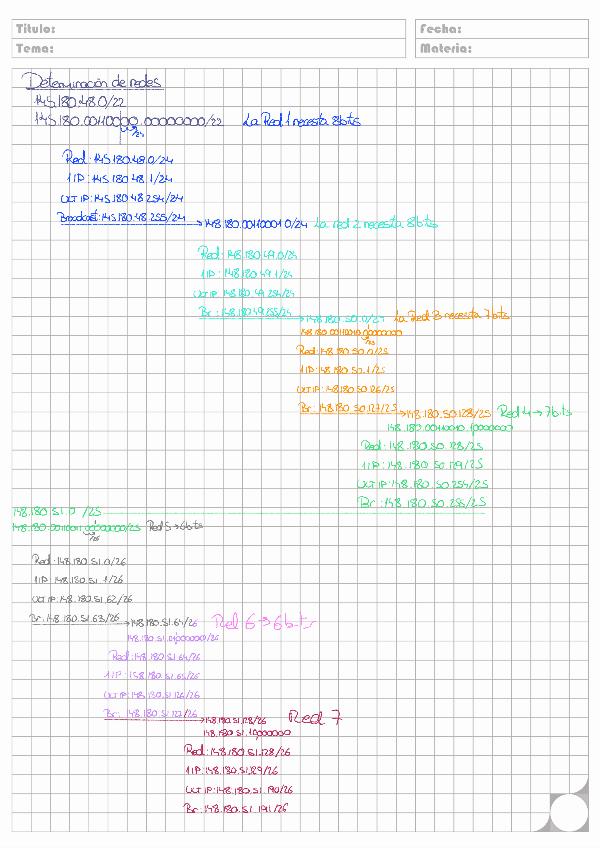 Título:
Fecha:
Tema:
Materia:
Determinación de redes
145.180.48.0/22
145.180.00110000.00000000/22 La Red 1 necesita 8bits
/24
Red: 145.180.48.0/24
1IP: 145.180.48.1/24
ULT IP: 145.180.48.254/24
Broadcast: 145.180.48.255/24
148.180.00110001.0/24 La red 2 necesita 8bits
Red: 148.180.49.0/24
1IP: 148.180.49.1/24
ULT IP: 148.180.49.254/24
Br: 148.180.49.255/24
148.180.50.0/24 La Red 3 necesita 7bits
148.180.00110010.00000000
/25
Red: 148.180.50.0/25
1IP: 148.180.50.1/25
ULT IP: 148.180.50.126/25
Br: 148.180.50.127/25
148.180.50.128/25 Red 4 → 7bits
148.180.00110010.10000000
Red: 148.180.50.128/25
1IP: 148.180.50.129/25
ULT IP: 148.180.50.254/25
Br: 148.180.50.255/25
148.180.51.0 /25
148.180.00110011.00000000/25 Red 5 → 6bits
/26
Red: 148.180.51.0/26
1IP: 148.180.51.1/26
ULT IP: 148.180.51.62/26
Br: 148.180.51.63/26
148.180.51.64/26 Red 6 → 6bits
148.180.51.01000000/26
Red: 148.180.51.64/26
1IP: 148.180.51.65/26
ULT IP: 148.180.51.126/26
Br: 148.180.51.127/26
148.180.51.128/26 Red 7
148.180.51.10000000
Red: 148.180.51.128/26
1IP: 148.180.51.129/26
ULT IP: 148.180.51.190/26
Br: 148.180.51.191/26